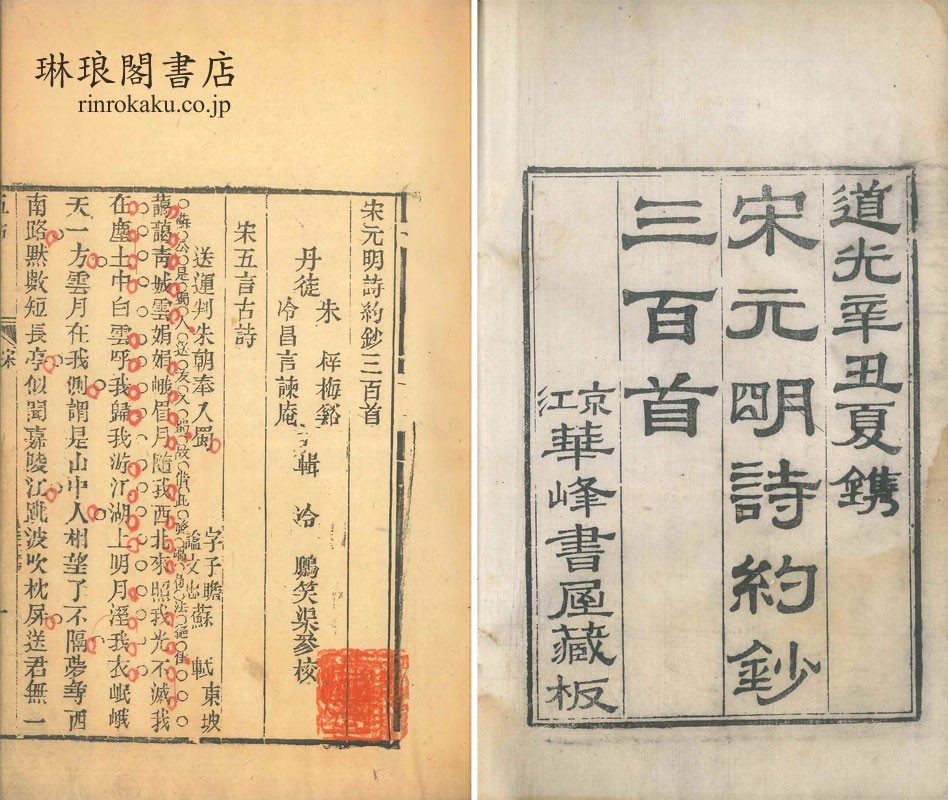 琳琅閣書店
rinrokaku.co.jp
道光辛丑夏鐫
宋元明詩約鈔
三百首
京江華峰書屋藏板
宋元明詩約鈔三百首
丹徒 朱梓梅谿 冷昌言諫庵 輯 冷鵬笑渠參校
宋五言古詩
送運判朱朝奉入蜀 蘇軾 字子瞻 謚文忠 東坡
藹藹青城雲娟娟峨眉月隨我西北來照我光不滅我
在塵土中白雲呼我歸我游江湖上明月溼我衣岷峨
天一方雲月在我側謂是山中人相望了不隔夢尋西
南路默數短長亭似聞嘉陵江跳波吹枕屏送君無一
宋
一